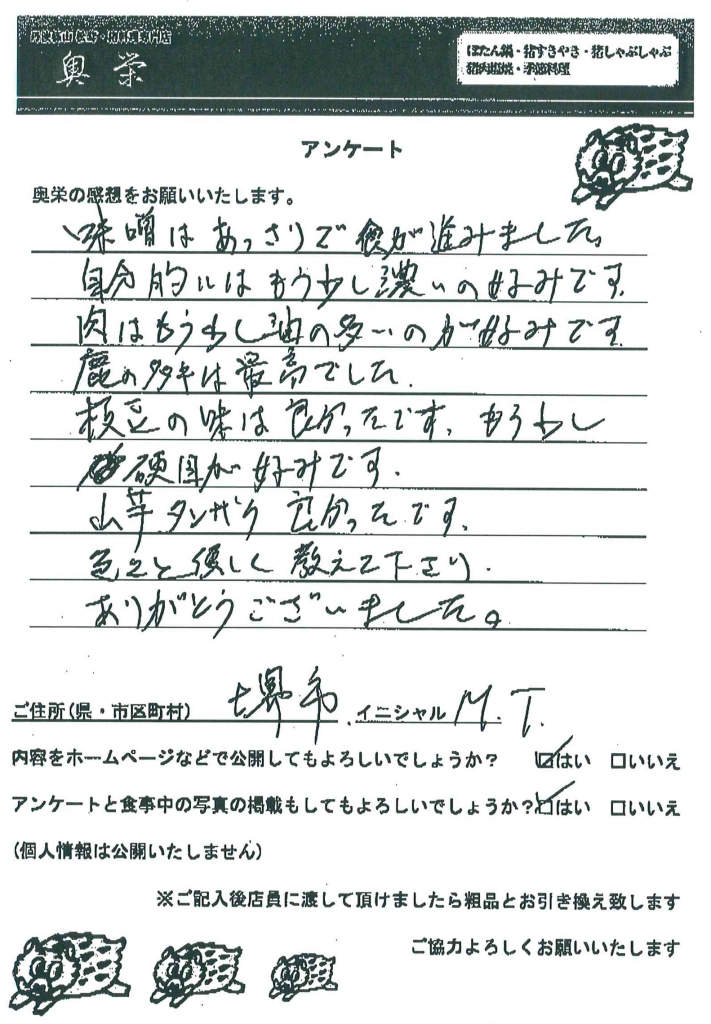 丹波篠山 牡丹・猪料理専門店
奥栄
ぼたん鍋・猪すきやき・猪しゃぶしゃぶ
猪肉塩焼・季節料理
アンケート
奥栄の感想をお願いいたします。
味噌はあっさりで食が進みました。
自分的にはもう少し濃いの好みです。
肉はもう少し油の多いのが好みです
鹿のタタキは最高でした.
枝豆の味は良かったです. もう少し
硬目が好みです.
山芋タンザク良かったです.
色々と優しく教えて下さり.
ありがとうございました。
ご住所(県・市区町村) 堺市. イニシャル M. T.
内容をホームページなどで公開してもよろしいでしょうか? ☑はい □いいえ
アンケートと食事中の写真の掲載もしてもよろしいでしょうか?☑はい □いいえ
(個人情報は公開いたしません)
※ご記入後店員に渡して頂けましたら粗品とお引き換え致します
ご協力よろしくお願いいたします